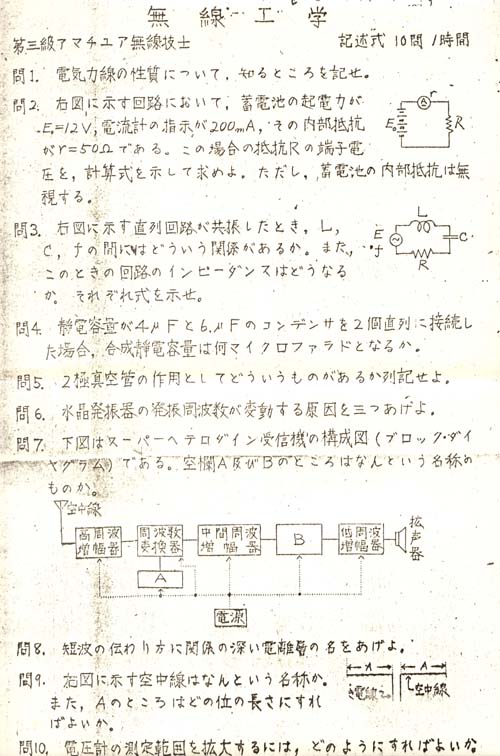 無線工学
第三級アマチュア無線技士 記述式 10問 1時間
問1. 電気力線の性質について, 知るところを記せ。
問2. 右図に示す回路において, 蓄電池の起電力が
E=12V, 電流計の指示が200mA, その内部抵抗
がr=50Ωである。この場合の抵抗Rの端子電
圧を, 計算式を示して求めよ。ただし, 蓄電池の内部抵抗は無
視する。
A r
E
R
問3. 右図に示す直列回路が共振したとき, L,
C, fの間にはどういう関係があるか。また,
このときの回路のインピーダンスはどうなる
か。それぞれ式を示せ。
L
E
f
C
R
問4. 静電容量が4μFと6μFのコンデンサを2個直列に接続し
た場合, 合成静電容量は何マイクロファラドとなるか。
問5. 2極真空管の作用としてどういうものがあるか列記せよ。
問6. 水晶発振器の発振周波数が変動する原因を三つあげよ。
問7. 下図はスーパーヘテロダイン受信機の構成図(ブロック・ダイ
ヤグラム)である。空欄A及びBのところはなんという名称の
ものか。
空中線
高周波増幅器
周波数変換器
中間周波増幅器
B
低周波増幅器
拡声器
A
電源
問8. 短波の伝わり方に関係の深い電離層の名をあげよ。
問9. 右図に示す空中線はなんという名称か。
また, Aのところはどの位の長さにすれ
ばよいか。
A A
空中線
問10. 電圧計の測定範囲を拡大するには, どのようにすればよいか。